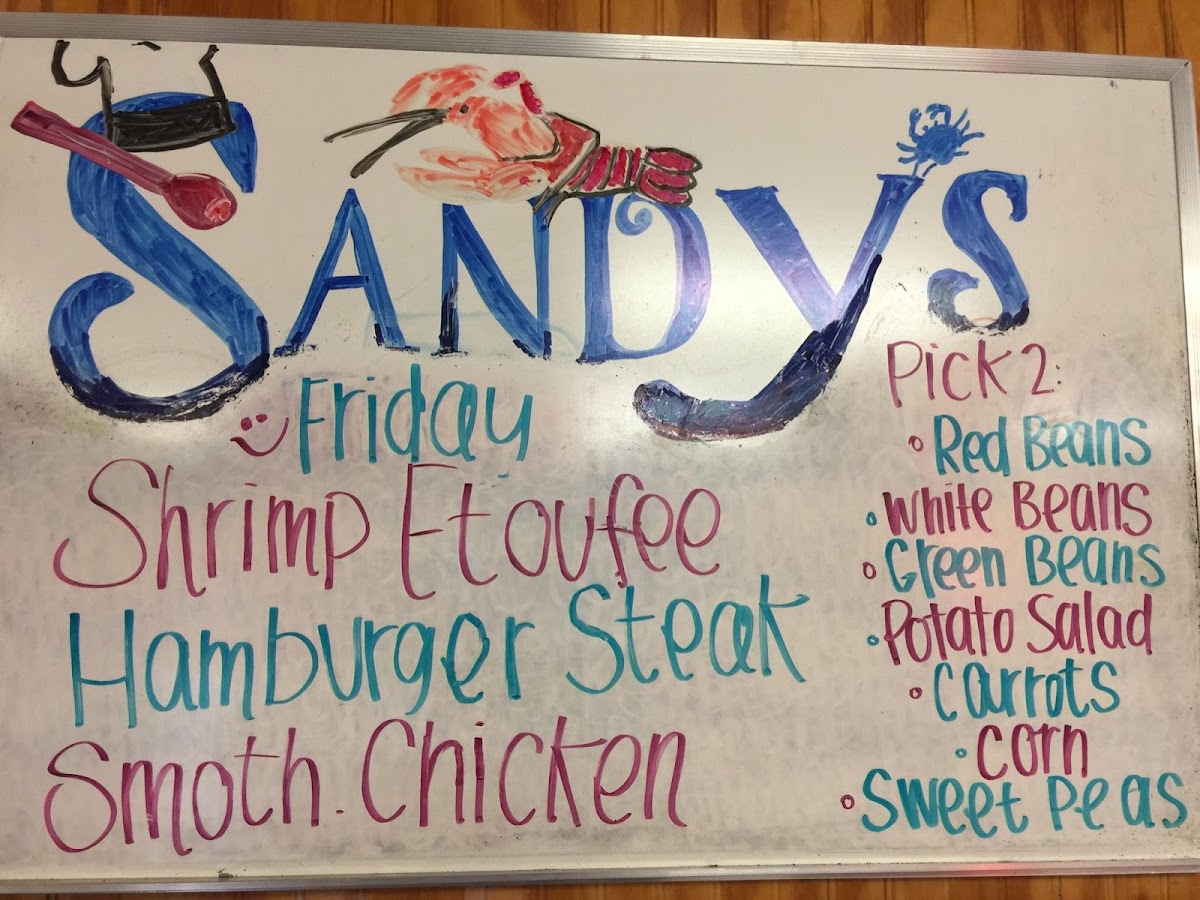 SANDYS
Friday
Shrimp Etoufee
Hamburger Steak
Smoth. Chicken
Pick 2:
Red Beans
White Beans
Green Beans
Potato Salad
Carrots
Corn
Sweet Peas